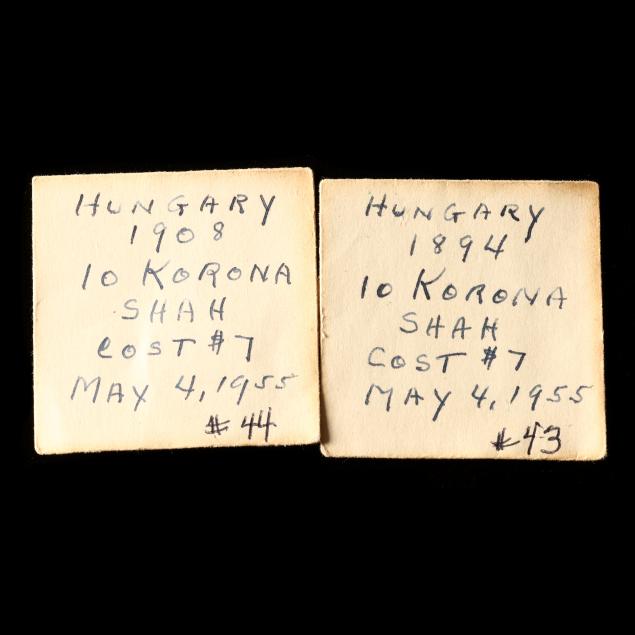 HUNGARY
1908
10 KORONA
SHAH
COST #7
MAY 4, 1955
# 44
HUNGARY
1894
10 KORONA
SHAH
COST #7
MAY 4, 1955
# 43